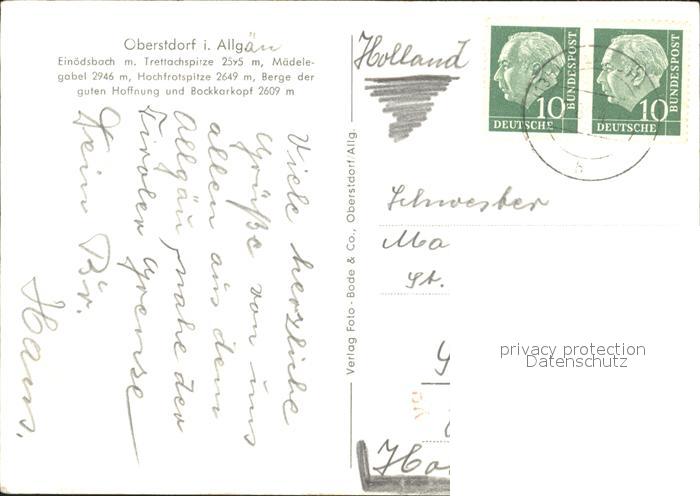 Oberstdorf i. Allgäu
Einödsbach m. Trettachspitze 2595 m, Mädele-
gabel 2946 m, Hochfrotspitze 2649 m, Berge der
guten Hoffnung und Bockkarkopf 2609 m
Viele herzliche
Grüße von uns
allen aus dem
Allgäu, nahe der
Tiroler Grenze
Dein Br.
Hans.
Verlag Foto - Bode & Co., Oberstdorf/Allg.
Holland
10 DEUTSCHE BUNDESPOST
10 DEUTSCHE BUNDESPOST
Schwester
Ma
St.
Ho
privacy protection
Datenschutz